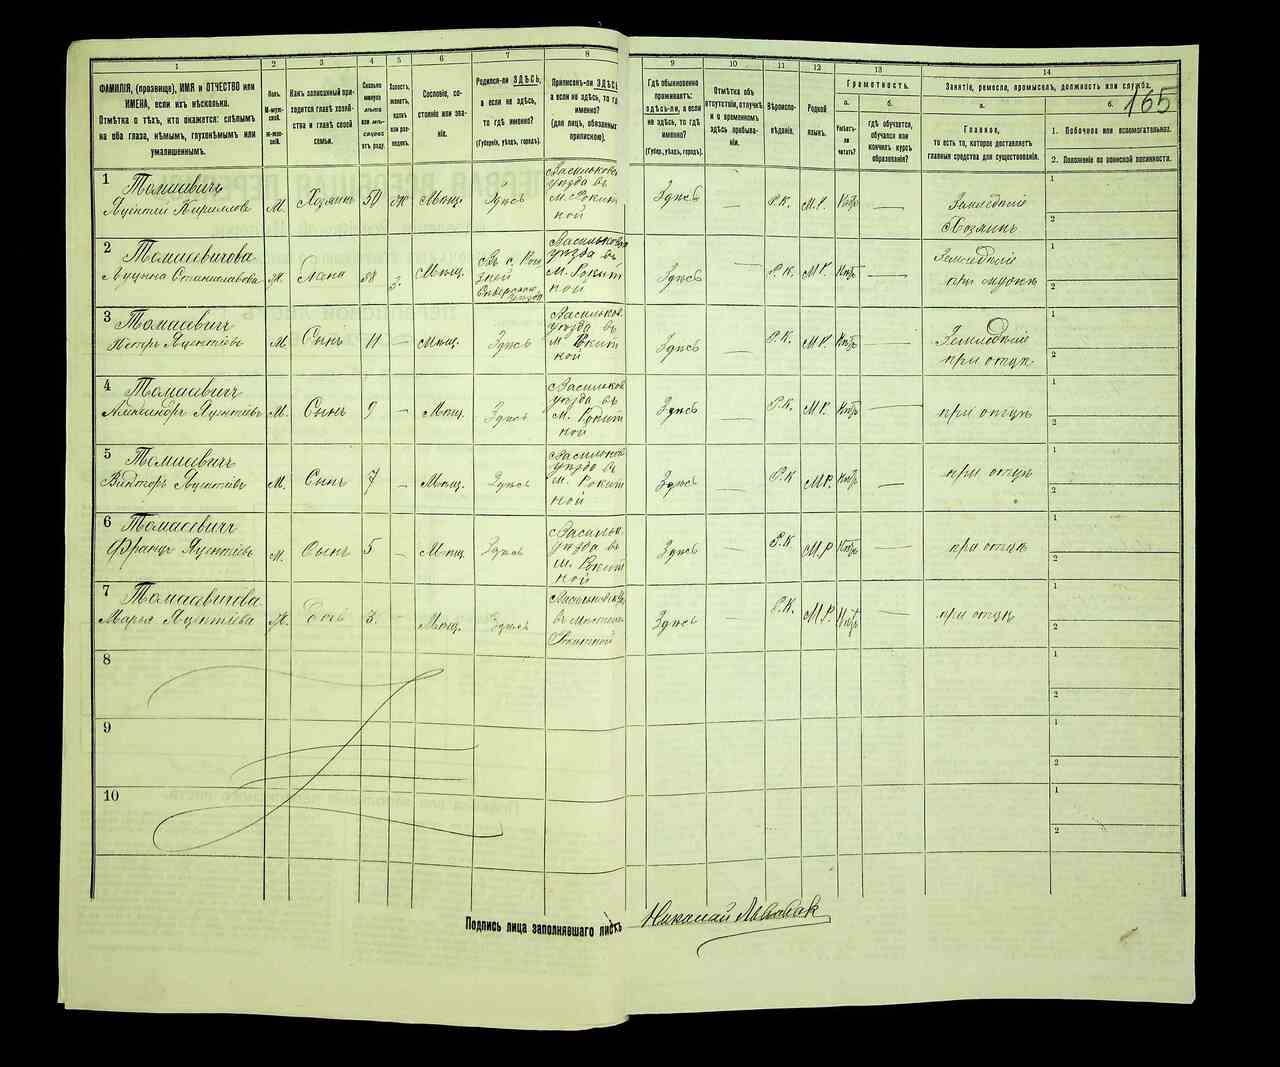 165
1
2
3
4
5
6
7
8
9
10
11
12
13
14
ФАМИЛІЯ, (прозвище), ИМЯ и ОТЧЕСТВО или
ИМЕНА, если ихъ нѣсколько.
Отмѣтка о тѣхъ, кто окажется: слѣпымъ
на оба глаза, нѣмымъ, глухонѣмымъ или
умалишеннымъ.
Полъ.
М-муж-
ской.
Ж-жен-
скій.
Какъ записанный при-
ходится главѣ хозяй-
ства и главѣ своей
семьи.
Сколько
минуло
лѣтъ
или мѣ-
сяцевъ
отъ роду.
Холостъ,
женатъ,
вдовъ
или раз-
веденъ.
Сословіе, со-
стояніе или зва-
ніе.
Родился-ли ЗДѢСЬ,
а если не здѣсь,
то гдѣ именно?
(Губернія, уѣздъ, городъ).
Приписанъ-ли ЗДѢСЬ
а если не здѣсь, то гд
именно?
(для лицъ, обязанных
припискою).
Гдѣ обыкновенно
проживаетъ:
здѣсь-ли, а если
не здѣсь, то гдѣ
именно?
(Губер., уѣздъ, городъ).
Отмѣтка объ
отсутствіи, отлучкѣ
и о временномъ
здѣсь пребыва-
ніи.
Вѣроиспо-
вѣданіе.
Родной
языкъ.
Грамотность.
а.
Умѣетъ-
ли
читать?
б.
гдѣ обучается,
обучался или
кончилъ курсъ
образованія?
Занятіе, ремесло, промыселъ, должность или служба.
а.
Главное,
то есть то, которое доставляетъ
главныя средства для существованія.
б.
1. Побочное или вспомогательное.
2. Положеніе по воинской повинности.
1 Томасевичъ
Яцентій Кирилловъ М. Хозяинъ 50 Ж Мѣщ. Здѣсь
Васильков.
уѣзда въ
м. Рокит
ной
Здѣсь — Р.К. М.Р. —
Хозяинъ
1
2
2 Томасевичова
Станиславова Ж. Жена 38 З. Мѣщ.
Васильков
уѣзда въ
м. Рокит
ной
Здѣсь — Р.К. М.Р. —
при мужѣ
1
2
3 Томасевичъ
Петръ Яцентіевъ М. Сынъ 11 — Мѣщ. Здѣсь
Васильков.
уѣзда въ
м. Рокит
ной
Здѣсь — Р.К. М.Р. —
при отцѣ
1
2
4 Томасевичъ
Александръ Яцентіевъ М. Сынъ 9 — Мѣщ. Здѣсь
Васильков
уѣзда въ
м. Рокит
ной
Здѣсь — Р.К. М.Р. — при отцѣ
1
2
5 Томасевичъ
Викторъ Яцентіевъ М. Сынъ 7 — Мѣщ. Здѣсь
Васильков
уѣзда въ
м. Рокит
ной
Здѣсь — Р.К. М.Р. — при отцѣ
1
2
6 Томасевичъ
Францъ Яцентіевъ М. Сынъ 5 — Мѣщ. Здѣсь
Васильк.
уѣзда въ
м. Рокит
ной
Здѣсь — Р.К. М.Р. — при отцѣ
1
2
7 Томасевичова
Марья Яцентіева Ж. Дочь 3. Мѣщ. Здѣсь
Здѣсь — Р.К. М.Р. — при отцѣ
1
2
8
1
2
9
1
2
10
1
2
Подпись лица заполнявшаго листъ Николай